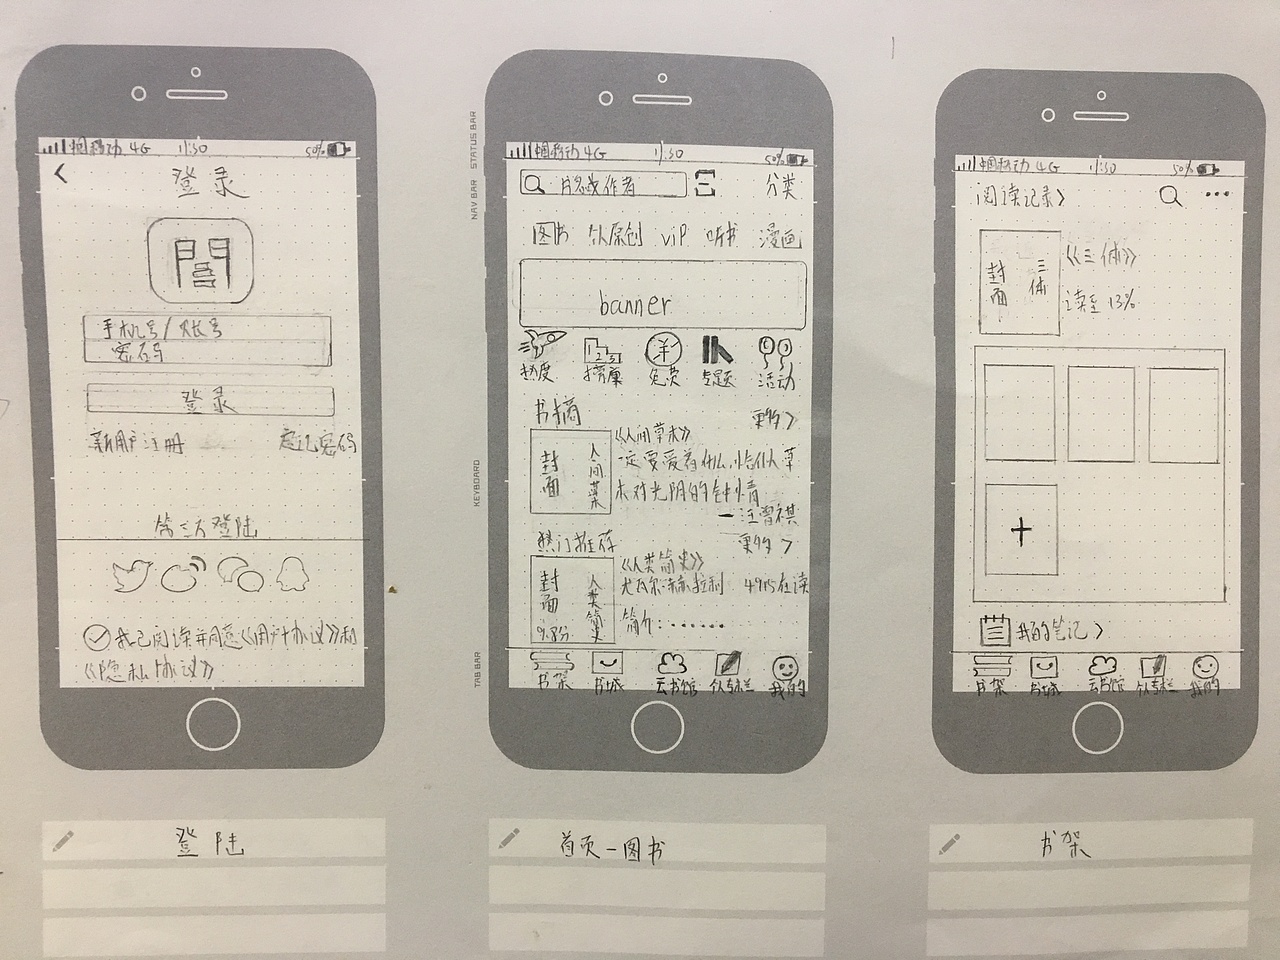 中国移动 4G 11:30 50%
登录
手机号/账号
密码
登录
新用户注册 忘记密码
第三方登陆
我已阅读并同意《用户协议》和
《隐私协议》
登陆
STATUS BAR
NAV BAR
KEYBOARD
TAB BAR
中国移动 4G 11:30 50%
书名或作者 分类
图书 个人原创 VIP 听书 漫画
banner
热度 榜单 免费 专题 活动
书摘 更多
封面 人间草木
《人间草木》
一定要爱着什么,恰似草
木对光阴的钟情
—汪曾祺
热门推荐 更多
封面 人类简史
9.8分
《人类简史》
尤瓦尔·赫拉利 49W在读
简介:……
书架 书城 云书馆 个人专栏 我的
首页-图书
中国移动 4G 11:30 50%
阅读记录
封面 三体
《三体》
读至 13%
我的笔记
书架 书城 云书馆 个人专栏 我的
书架